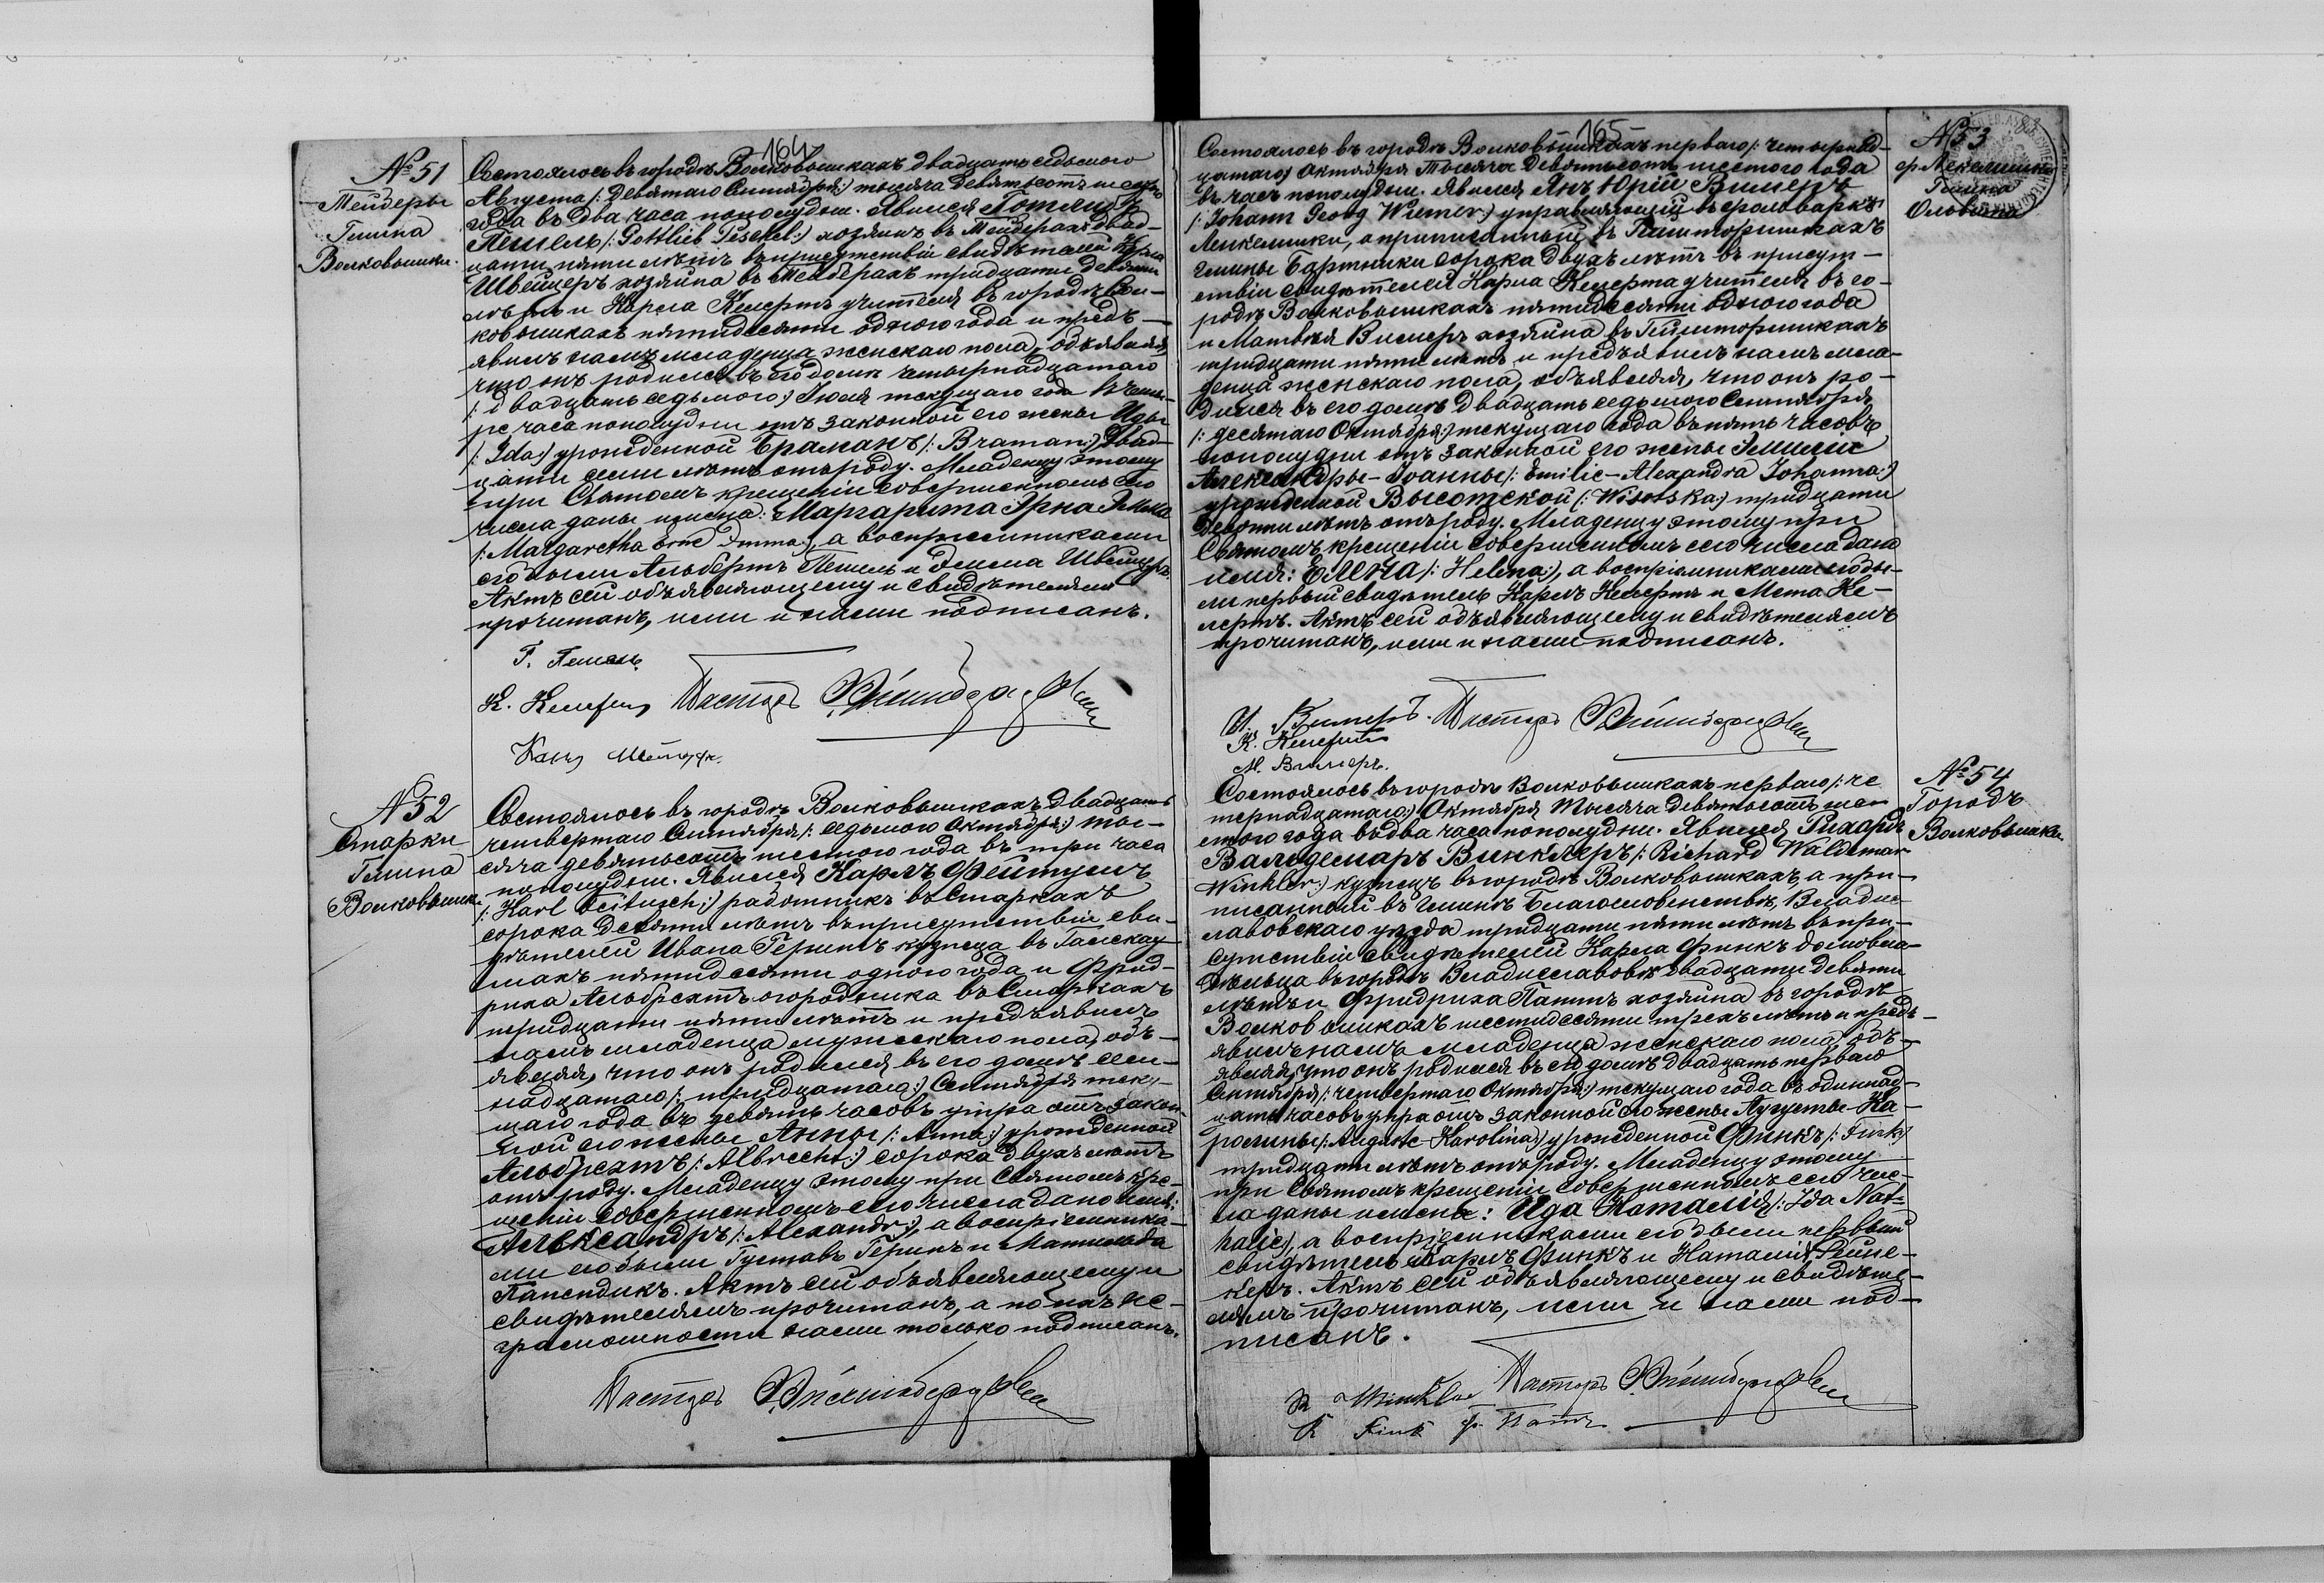 164
№ 51
Тейдеры
Гмина
Волковышки.
Состоялось въ городѣ Волковышкахъ двадцать седьмого
Августа /: Девятаго Сентября :/ тысяча девятьсотъ шестого
года въ два часа пополудни. Явился Готлибъ
Пешель /: Gottlieb Peschel :/ хозяинъ въ Тейдерахъ двад-
цати пяти лѣтъ въ присутствіи свидѣтелей
Швейцеръ хозяина въ Тейдерахъ тридцати девяти
лѣтъ и Карла Келертъ учителя въ городѣ Вол-
ковышкахъ пятидесяти одного года и предъ-
явилъ намъ младенца женскаго пола, объявляя,
что онъ родился въ его домѣ четырнадцатаго
/: двадцать седьмого :/ Іюля текущаго года въ четы-
ре часа пополудни отъ законной его жены Иды
/: Ida :/ урожденной Браманъ /: Braman :/ двад-
цати семи лѣтъ отъ роду. Младенцу этому
при Святомъ крещеніи совершенномъ сего
числа даны имена: Маргарита Эрна Эмма
/: Margaretha Erne Emma :/, а воспріемниками
его были Альбертъ Пешель и Эмма Швейцеръ.
Актъ сей объявляющему и свидѣтелямъ
прочитанъ, ими и нами подписанъ.
Г. Пешель.
К. Келертъ Пасторъ
№ 52
Старки
Гмина
Волковышки
Состоялось въ городѣ Волковышкахъ двадцать
четвертаго Сентября /: седьмого Октября :/ ты-
сяча девятьсотъ шестого года въ три часа
пополудни. Явился Карлъ Фейтушъ
/: Karl Feitusch :/ работникъ въ Старкахъ
сорока девяти лѣтъ въ присутствіи сви-
дѣтелей Ивана Геринъ кузнеца въ
пятидесяти одного года и Фрид-
риха Альбрехтъ огородника въ Старкахъ
тридцати пяти лѣтъ и предъявилъ
намъ младенца мужескаго пола, объ-
являя, что онъ родился въ его домѣ сем-
надцатаго /: тридцатаго :/ Сентября теку-
щаго года въ девять часовъ утра отъ закон-
ной его жены Анны /: Anna :/ урожденной
Альбрехтъ /: Albrecht :/ сорока двухъ лѣтъ
отъ роду. Младенцу этому при Святомъ кре-
щеніи совершенномъ сего числа дано имя:
Александръ /: Alexander :/, а воспріемника-
ми его были Густавъ Геринъ и Матильда
Папендикъ. Актъ сей объявляющему и
свидѣтелямъ прочитанъ, а по ихъ не-
грамотности нами только подписанъ.
Пасторъ
165
№ 53
Гмина
Ольвита
Состоялось въ городѣ Волковышкахъ перваго /: четырнад-
цатаго :/ Октября Тысяча Девятьсотъ шестого года
въ часъ пополудни. Явился Янъ Юрій Вимеръ
/: Johann Georg Wiemer :/ управляющій въ фольваркѣ
а приписанный въ
гмины Бартники сорока двухъ лѣтъ въ присут-
ствіи свидѣтелей Карла Келерта учителя въ го-
родѣ Волковышкахъ пятидесяти одного года
и Матвѣя Вимеръ хозяина въ
тридцати пяти лѣтъ и предъявилъ намъ мла-
денца женскаго пола, объявляя, что онъ ро-
дился въ его домѣ двадцать седьмого Сентября
/: десятаго Октября :/ текущаго года въ пять часовъ
пополудни отъ законной его жены Эмиліи
Александры-Іоанны /: Emilie-Alexandra Johanna :/
урожденной Высотской /: Wisotska :/ тридцати
девяти лѣтъ отъ роду. Младенцу этому при
Святомъ крещеніи совершенномъ сего числа дано
имя: Елена /: Helena :/, а воспріемниками его бы-
ли первый свидѣтель Карлъ Келертъ и Мета Ке-
лертъ. Актъ сей объявляющему и свидѣтелямъ
прочитанъ, ими и нами подписанъ.
И. Вимеръ. Пасторъ
К. Келертъ
М. Вимеръ.
№ 54
Городъ
Волковышки
Состоялось въ городѣ Волковышкахъ перваго /: че-
тырнадцатаго :/ Октября Тысяча девятьсотъ шес-
того года въ два часа пополудни. Явился Рихардъ
Вальдемаръ Винклеръ /: Richard Waldemar
Winkler :/ кузнецъ въ городѣ Волковышкахъ, а при-
писанный въ гминѣ Благословенство, Владис-
лавовскаго уѣзда тридцати пяти лѣтъ въ при-
сутствіи свидѣтелей Карла Финкъ домовла-
дѣльца въ городѣ Владиславовѣ двадцати девяти
лѣтъ и Фридриха Патъ хозяина въ городѣ
Волковышкахъ шестидесяти трехъ лѣтъ и предъ-
явилъ намъ младенца женскаго пола, объ-
являя, что онъ родился въ его домѣ двадцать перваго
Сентября /: четвертаго Октября :/ текущаго года въ одиннад-
цать часовъ утра отъ законной его жены Августы-Ка-
ролины /: Auguste-Karolina :/ урожденной Финкъ /: Fink :/
тридцати лѣтъ отъ роду. Младенцу этому
при Святомъ крещеніи совершенномъ сего чис-
ла даны имена: Ида Наталія /: Ida Nat-
halie :/, а воспріемниками его были первый
свидѣтель Карлъ Финкъ и Наталія Рейне-
керъ. Актъ сей объявляющему и свидѣте-
лямъ прочитанъ, ими и нами под-
писанъ.
R Winkler Пасторъ
K Fink Ф. Патъ